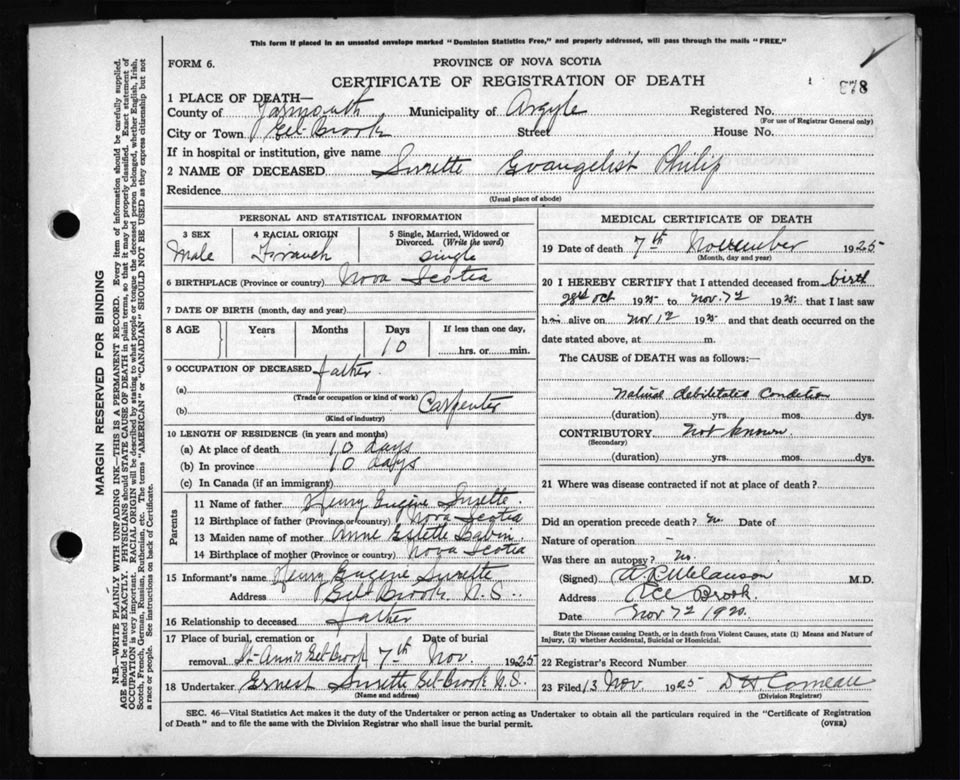 This form if placed in an unsealed envelope marked "Dominion Statistics Free," and properly addressed, will pass through the mails "FREE."
FORM 6.
PROVINCE OF NOVA SCOTIA
CERTIFICATE OF REGISTRATION OF DEATH
878
1 PLACE OF DEATH—
County of Yarmouth Municipality of Argyle Registered No.
(For use of Registrar General only)
City or Town Eel-Brook Street House No.
If in hospital or institution, give name
2 NAME OF DECEASED Surette Evangelist Philip
Residence
(Usual place of abode)
PERSONAL AND STATISTICAL INFORMATION
3 SEX 4 RACIAL ORIGIN 5 Single, Married, Widowed or Divorced. (Write the word)
Male French single
6 BIRTHPLACE (Province or country) Nova Scotia
7 DATE OF BIRTH (month, day and year)
8 AGE Years Months Days If less than one day,
10 hrs. or min.
9 OCCUPATION OF DECEASED father.
(a)
(Trade or occupation or kind of work)
(b) Carpenter
(Kind of industry)
10 LENGTH OF RESIDENCE (in years and months)
(a) At place of death 10 days
(b) In province 10 days
(c) In Canada (if an immigrant)
Parents
11 Name of father Henry Eugène Surette.
12 Birthplace of father (Province or country) Nova Scotia
13 Maiden name of mother Anne Estelle Babin.
14 Birthplace of mother (Province or country) Nova Scotia
15 Informant's name Henry Eugene Surette
Address Eel-Brook. N.S.
16 Relationship to deceased father
17 Place of burial, cremation or removal St-Ann's Eel-Brook Date of burial 7th Nov. 1925
18 Undertaker Ernest Surette Eel-Brook N.S.
(Name and address)
MEDICAL CERTIFICATE OF DEATH
19 Date of death 7th November 1925
(Month, day and year)
20 I HEREBY CERTIFY that I attended deceased from birth
28th Oct 1925 to Nov. 7th 1925 that I last saw
him alive on Nov 1st 1925 and that death occurred on the
date stated above, at m.
The CAUSE of DEATH was as follows:—
Natural debilitated Condition
(duration) yrs. mos. dys.
CONTRIBUTORY not known.
(Secondary)
(duration) yrs. mos. dys.
21 Where was disease contracted if not at place of death?
Did an operation precede death? no Date of
Nature of operation —
Was there an autopsy? No.
(Signed) M.D.
Address Eel Brook.
Date Nov 7th 192
State the Disease causing Death, or in death from Violent Causes, state (1) Means and Nature of
Injury, (2) whether Accidental, Suicidal or Homicidal.
22 Registrar's Record Number
23 Filed 13 Nov. 1925 D H. Comeau
(Division Registrar)
SEC. 46—Vital Statistics Act makes it the duty of the Undertaker or person acting as Undertaker to obtain all the particulars required in the "Certificate of Registration
of Death" and to file the same with the Division Registrar who shall issue the burial permit. (OVER)
MARGIN RESERVED FOR BINDING
N.B.—WRITE PLAINLY WITH UNFADING INK—THIS IS A PERMANENT RECORD. Every item of information should be carefully supplied.
AGE should be stated EXACTLY. PHYSICIANS should STATE CAUSE OF DEATH in plain terms, so that it may be properly classified. Exact statement of
OCCUPATION is very important. RACIAL ORIGIN will be described by stating to what people or tongue the deceased person belonged, whether English, Irish,
Scotch, French, German, Russian, Ruthenian, etc. The terms "AMERICAN" or "CANADIAN" SHOULD NOT BE USED as they express citizenship but not
a race or people. See instructions on back of Certificate.